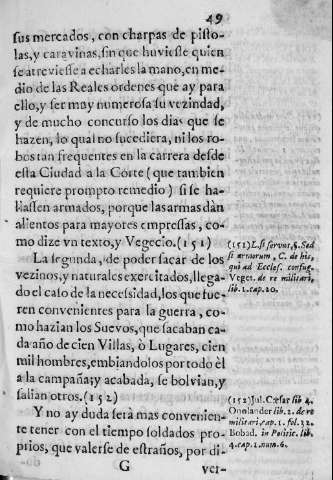 49
sus mercados, con charpas de pisto-
las, y caravinas, sin que huviesse quien
se atreviesse a echarles la mano, en me-
dio de las Reales ordenes que ay para
ello, y ser muy numerosa su vezindad,
y de mucho concurso los dias que se
hazen, lo qual no sucediera, ni los ro-
bos tan frequentes en la carrera desde
esta Ciudad a la Corte (que tambien
requiere prompto remedio) si se ha-
llassen armados, porque las armas dàn
alientos para mayores empressas, co-
mo dize vn texto, y Vegecio. (151)
La segunda, de poder sacar de los
vezinos, y naturales exercitados, llega-
do el caso de la necessidad, los que fue-
ren convenientes para la guerra, co-
mo hazian los Suevos, que sacaban ca-
da año de cien Villas, ò Lugares, cien
mil hombres, embiandolos por todo èl
a la campaña; y acabada, se bolvian, y
salian otros. (152)
Y no ay duda serà mas convenien-
te tener con el tiempo soldados pro-
prios, que valerse de estraños, por di-
G
ver-
(151) L. si servus, §. Sed
si armorum, C. de his,
qui ad Eccles. confug.
Veget. de re militari,
lib. 1. cap. 20.
(152) Jul. Cæsar lib. 4.
Onosander lib. 2. de re
militari, cap. 1. fol. 32.
Bobad. in Politic. lib.
4. cap. 2. num. 6.